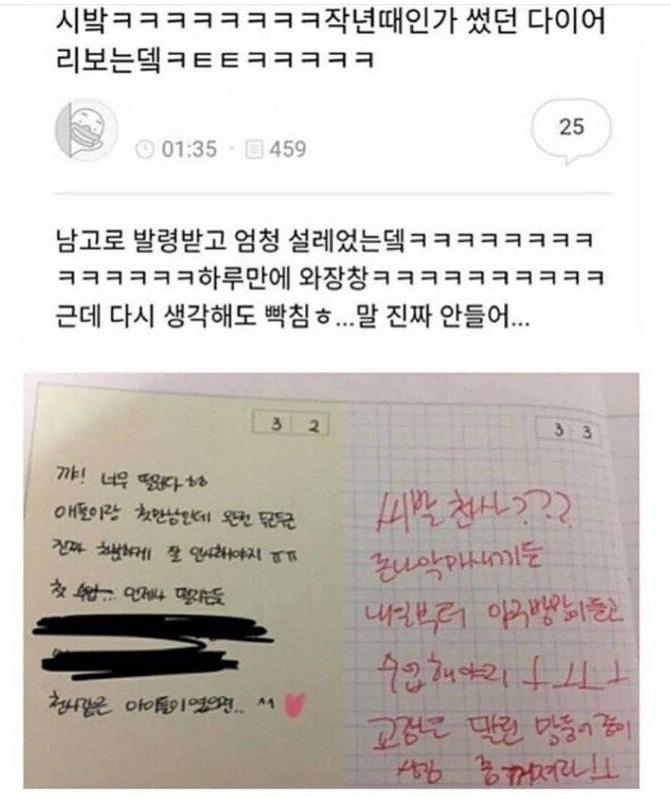 시밬ㅋㅋㅋㅋㅋㅋㅋㅋㅋ작년때인가 썼던 다이어
리보는뎈ㅋㅌㅌㅋㅋㅋㅋㅋ
01:35 · 459
25
남고로 발령받고 엄청 설레었는뎈ㅋㅋㅋㅋㅋㅋㅋㅋ
ㅋㅋㅋㅋㅋㅋ하루만에 와장창ㅋㅋㅋㅋㅋㅋㅋㅋㅋㅋ
근데 다시 생각해도 빡침ㅎ...말 진짜 안들어...
3 2
꺄! 너무 떨린다ㅎㅎ
애들이랑 첫만남인데 완전 두근두근
진짜 친절하게 잘 인사해야지 ㅠㅠ
첫 수업... 언제나 떨리는듯
천사같은 아이들이였으면.. ^^
3 3
씨발 천사???
존나악마새끼들
내일부터 야구방망이들고
수업해야지 ㅗㅜㅜㅗ
교장은 말린 망둥어 종이